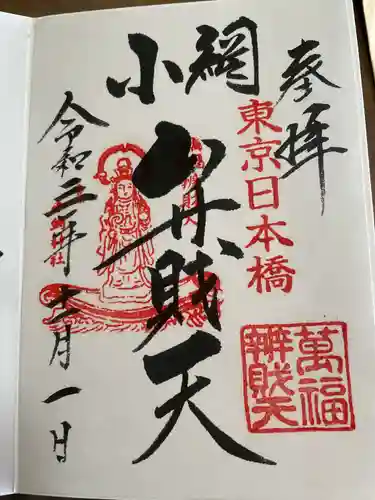 奉拝
東京日本橋
萬福
辨財天
小網
弁財天
令和三年十一月一日